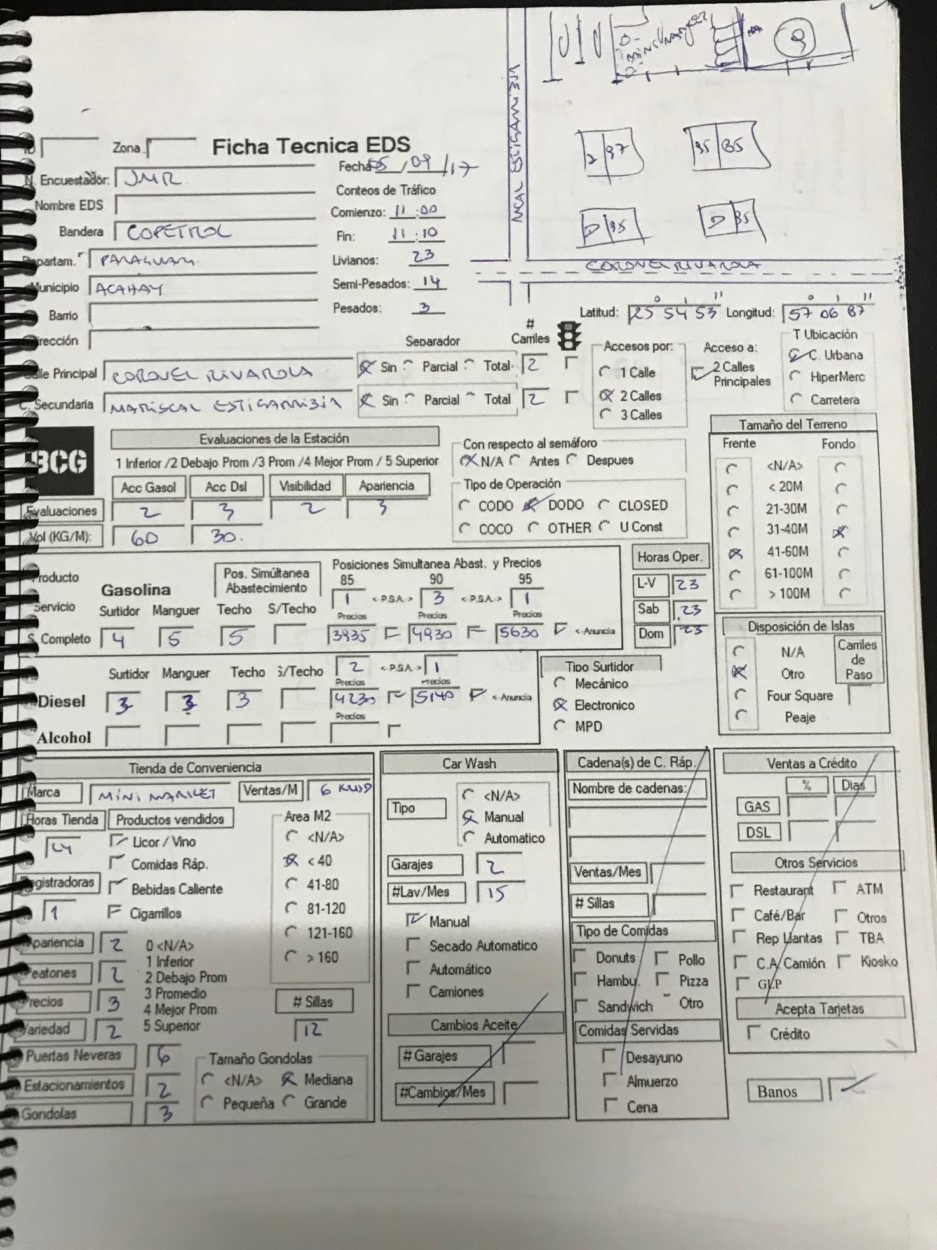 MINI MARKET
MCAL ESTIGARRIBIA
2 97
95 85
D 95
D 95
CORONEL RIVAROLA
Zona
Ficha Tecnica EDS
Fecha 05/09/17
N. Encuestador: JMR
Conteos de Tráfico
Nombre EDS
Comienzo: 11:00
Bandera COPETROL
Fin: 11:10
Departam. PARAGUARI
Livianos: 23
Municipio ACAHAY
Semi-Pesados: 14
Barrio
Pesados: 3
Dirección
Latitud: 25 54 53 Longitud: 57 06 87
Separador # Carriles
Calle Principal CORONEL RIVAROLA Sin Parcial Total 2
C. Secundaria MARISCAL ESTIGARRIBIA Sin Parcial Total 2
Accesos por:
1 Calle
2 Calles
3 Calles
Acceso a:
2 Calles Principales
T Ubicación
C. Urbana
HiperMerc
Carretera
BCG
Evaluaciones de la Estación
1 Inferior /2 Debajo Prom /3 Prom /4 Mejor Prom / 5 Superior
Acc Gasol Acc Dsl Visibilidad Apariencia
Evaluaciones 2 3 2 3
Vol (KG/M): 60 30.
Con respecto al semáforo
N/A Antes Despues
Tipo de Operación
CODO DODO CLOSED
COCO OTHER U Const
Tamaño del Terreno
Frente Fondo
<N/A>
< 20M
21-30M
31-40M
41-60M
61-100M
> 100M
Producto
Gasolina
Pos. Simúltanea Abastecimiento
Posiciones Simultanea Abast. y Precios
85 90 95
1 <-P.S.A.-> 3 <-P.S.A.-> 1
Servicio Surtidor Manguer Techo S/Techo
Precios Precios Precios
S. Completo 4 5 5 3935 4930 5630 <-Anuncia
Horas Oper.
L-V 23
Sab 23
Dom 23
Surtidor Manguer Techo S/Techo 2 <-P.S.A-> 1
Precios Precios
Diesel 3 3 3 4230 5140 <-Anuncia
Precios
Alcohol
Tipo Surtidor
Mecánico
Electronico
MPD
Disposición de Islas
N/A
Otro
Four Square
Peaje
Carriles de Paso
Tienda de Conveniencia
Marca MINI MARKET Ventas/M 6 KUSD
Horas Tienda Productos vendidos
24
Licor / Vino
Comidas Ráp.
Registradoras
Bebidas Caliente
1
Cigarrillos
Area M2
<N/A>
< 40
41-80
81-120
121-160
> 160
Apariencia 2
Peatones 2
Precios 3
Variedad 2
0 <N/A>
1 Inferior
2 Debajo Prom
3 Promedio
4 Mejor Prom
5 Superior
# Sillas
12
Puertas Neveras 6
Estacionamientos 2
Gondolas 3
Tamaño Gondolas
<N/A> Mediana
Pequeña Grande
Car Wash
Tipo
<N/A>
Manual
Automatico
Garajes 2
#Lav/Mes 15
Manual
Secado Automatico
Automático
Camiones
Cambios Aceite
# Garajes
#Cambios/Mes
Cadena(s) de C. Ráp.
Nombre de cadenas:
Ventas/Mes
# Sillas
Tipo de Comidas
Donuts Pollo
Hambu. Pizza
Sandwich Otro
Comidas Servidas
Desayuno
Almuerzo
Cena
Ventas a Crédito
% Dias
GAS
DSL
Otros Servicios
Restaurant ATM
Café/Bar Otros
Rep Llantas TBA
C.A. Camión Kiosko
GLP
Acepta Tarjetas
Crédito
Banos